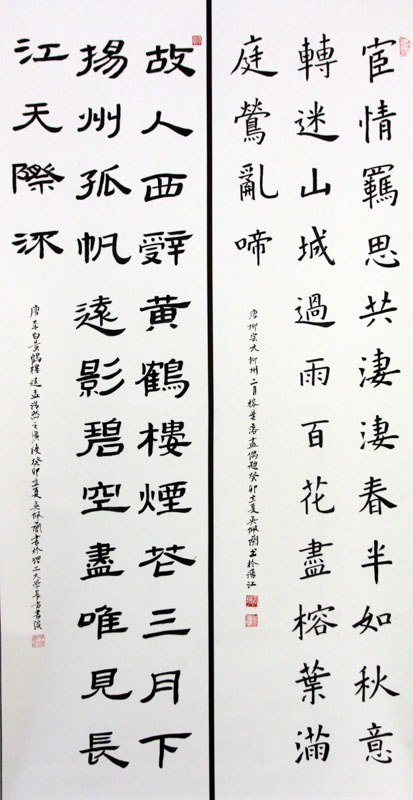 宦情羈思共淒淒春半如秋意
轉迷山城過雨百花盡榕葉滿
庭鶯亂啼
唐柳宗元柳州二月榕葉落盡偶題癸卯立夏吳佩蘭書於江
故人西辭黃鶴樓煙花三月下
揚州孤帆遠影碧空盡唯見長
江天際流
唐李白黃鶴樓送孟浩然之廣陵癸卯立夏吳佩蘭書於理工大學長青書院